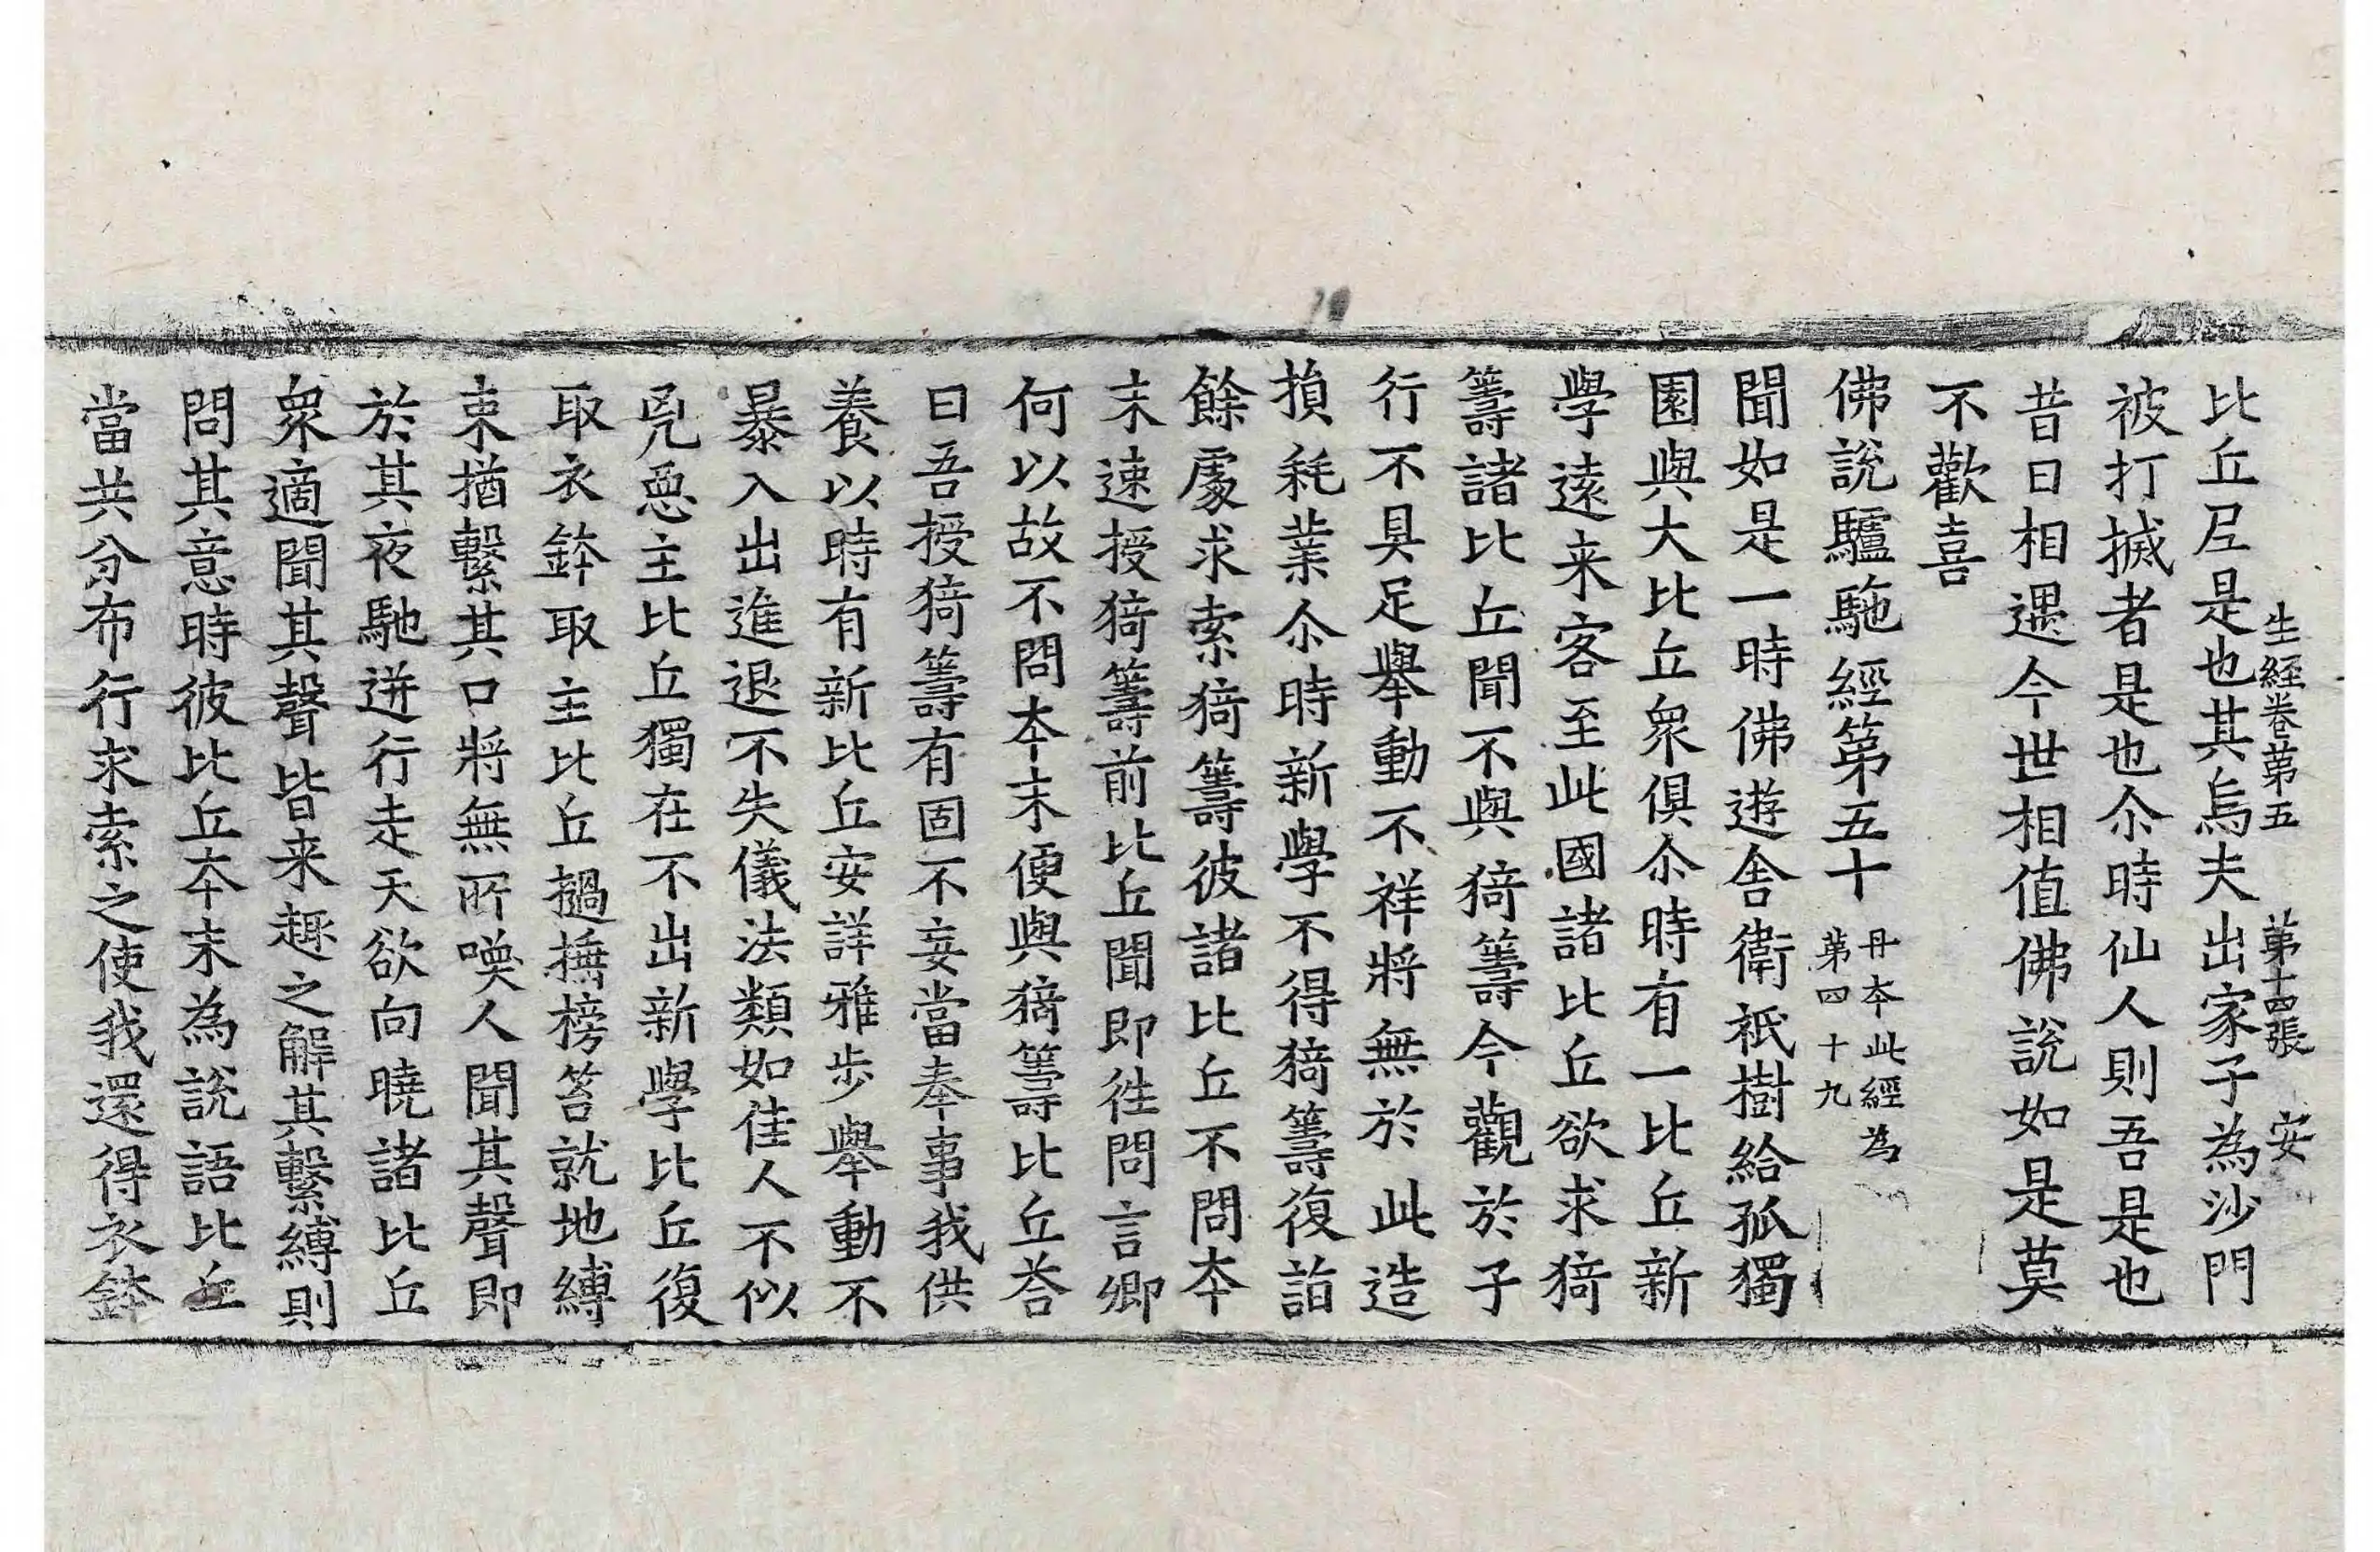 生経卷第五　第十四張　安
比丘尼是也其烏夫出家子為沙門
被打搣者是也尒時仙人則吾是也
昔日相遇今世相值佛說如是莫
不歡喜
佛說驢駞經第五十
丹夲此經為
第四十九
聞如是一時佛遊舍衛祇樹給孤獨
園與大比丘衆俱尒時有一比丘新
學遠来客至此國諸比丘欲求猗
籌諸比丘聞不與猗籌今觀於子
行不具足舉動不祥將無於此造
損耗業尒時新學不得猗籌復詣
餘處求索猗籌彼諸比丘不問夲
末速授猗籌前比丘聞即徃問言卿
何以故不問夲末便與猗籌比丘荅
曰吾授猗籌有固不妄當奉事我供
養以時有新比丘安詳雅步舉動不
暴入出進退不失儀法類如佳人不似
兇惡主比丘獨在不出新學比丘復
取衣鉢取主比丘撾捶榜笞就地縛
束猶繫其口將無所喚人聞其聲即
於其夜馳迸行走天欲向曉諸比丘
衆適聞其聲皆来趣之解其繫縛則
問其意時彼比丘夲末為說語比丘
當共分布行求索之使我還得衣鉢